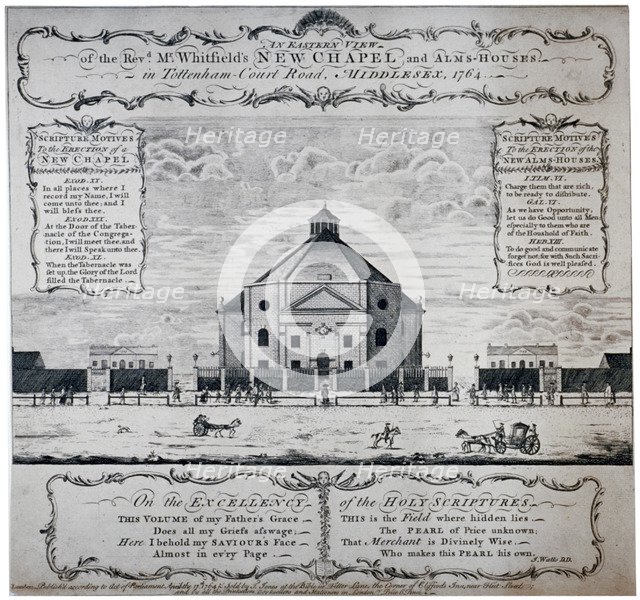 AN EASTERN VIEW
of the Revd. Mr. Whitfield's NEW CHAPEL and ALMS-HOUSES
in Tottenham-Court Road, MIDDLESEX, 1764.
SCRIPTURE MOTIVES
To the ERECTION of a
NEW CHAPEL
EXOD. XX.
In all places where I
record my Name, I will
come unto thee; and I
will bless thee.
EXOD. XXIX.
At the Door of the Taber-
nacle of the Congrega-
tion, I will meet thee, and
there I will Speak unto thee.
EXOD. XL.
When the Tabernacle was
set up, the Glory of the Lord
filled the Tabernacle
SCRIPTURE MOTIVES
To the ERECTION of the
NEW ALMS-HOUSES.
I. TIM. VI.
Charge them that are rich,
to be ready to distribute.
GAL. VI.
As we have Opportunity,
let us do Good unto all Men
especially to them who are
of the Houshold of Faith.
HEB. XIII.
To do good and communicate
forget not; for with Such Sacri-
fices God is well pleased.
Heritage Heritage
Heritage Heritage
Heritage Heritage
On the EXCELLENCY of the HOLY SCRIPTURES.
THIS VOLUME of my Father's Grace
Does all my Griefs asswage;
Here I behold my SAVIOURS Face
Almost in ev'ry Page
THIS is the Field where hidden lies
The PEARL of Price unknown;
That Merchant is Divinely Wise
Who makes this PEARL his own.
I. Watts D.D.
London, Publish'd according to Act of Parliament, April the 17th 1764 & Sold by J. Jones at the Bible in Fetter Lane, the Corner of Cliffords Inn, near Fleet Street;
and by all the Printsellers Booksellers and Stationers in London. Price 6d. Plain